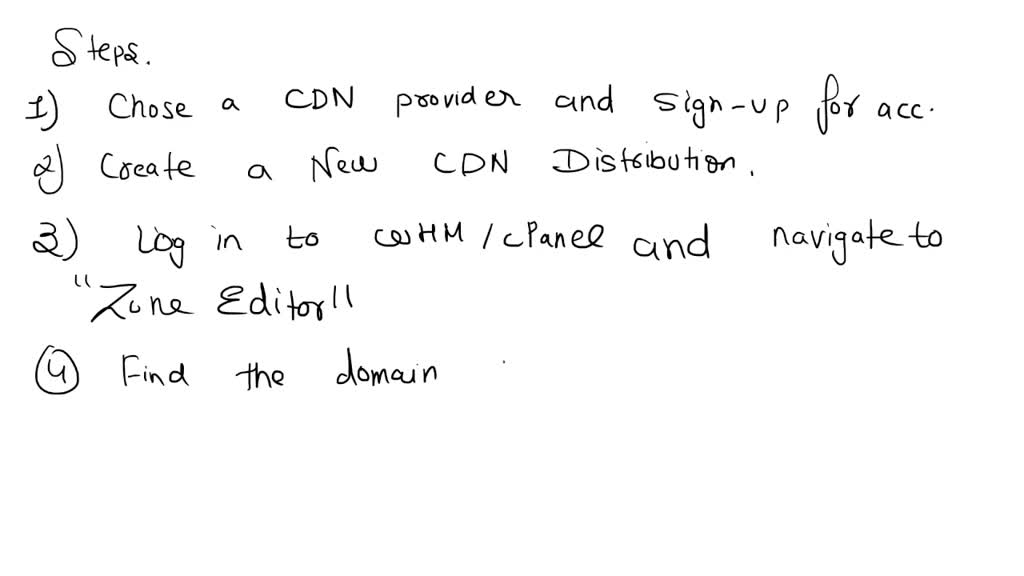 Steps.
1) Chose a CDN provider and sign-up for acc.
2) Create a New CDN Distribution.
3) Log in to WHM/cPanel and navigate to
"Zone Editor"
4 Find the domain